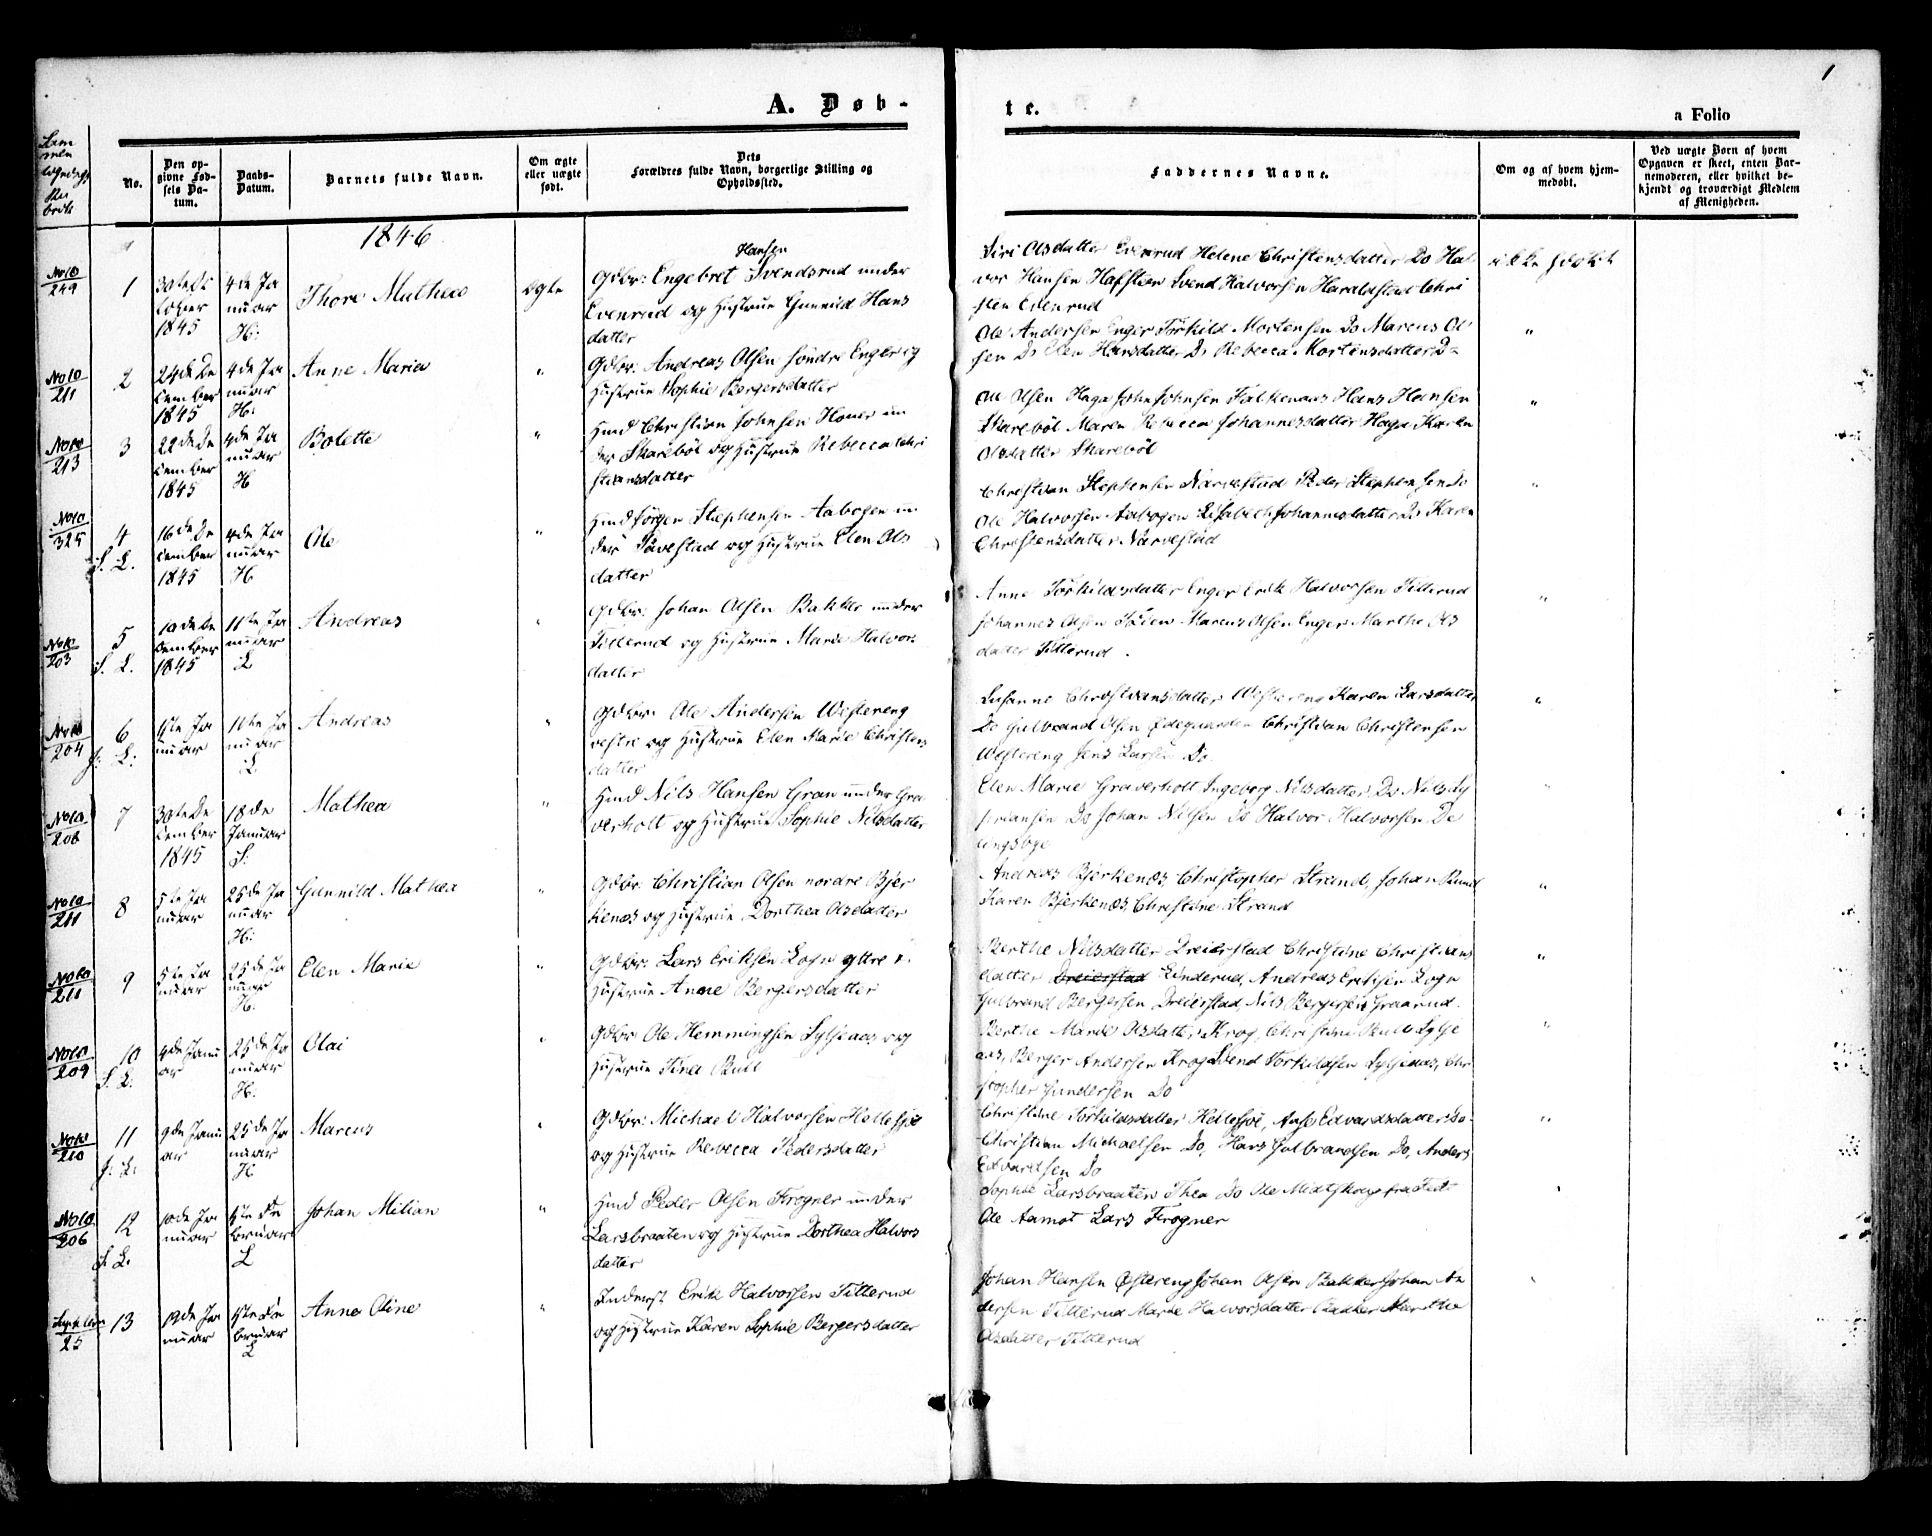 1
A. Døb-
te.
a Folio
No.
Den op-
givne Fød-
sels Da-
tum.
Daabs-
Datum.
Barnets fulde Navn.
Om ægte
eller uægte
født.
Dets
Forældres fulde Navn, borgerlige Stilling og
Opholdssted.
Faddernes Navne.
Om og af hvem hjem-
medøbt.
Ved uægte Børn af hvem
Opgaven er skeet, enten Bar-
nemoderen, eller hvilket be-
kjendt og troværdigt Medlem
af Menigheden.
1846
No 10
249
1
30te Oc
tober
1845
4de Ja
nuar
H:
Thore Mathea
ægte
Hansen
Gdbr: Engebret Svendsrud under
Evenrud og Hustrue Gunnild Hans
datter
Siri Olsdatter Evenrud Helene Christensdatter Do Hal
vor Hansen Svend Halvorsen Haraldstad Chri
sten Evenrud
ikke hjdøbt
No 10
211
2
24de De
cember
1845
4de Ja
nuar
H:
Anne Maria
"
Gdbr: Andreas Olsen søndre Enger og
Hustrue Sophie Bergersdatter
Ole Andersen Enger Torkild Mortensen Do Marcus Ol
sen Do Elen Hansdatter Do Rebecca Mortensdatter Do
"
No 10
213
3
22de De
cember
1845
4de Ja
nuar
H
Bolette
"
Huusmd Christian Johnsen un
der Skarebøl og Hustrue Rebecca Chri
stiansdatter
Ole Olsen Haga John Johnsen Hans Hansen
Skarebøl Maren Rebecca Johannesdatter Haga Karen
Olsdatter Skarebøl
"
No 10
325
4
S. L.
16de De
cember
1845
4de Ja
nuar
H
Ole
"
Hmd Jørgen Stephensen Aabogen un
der og Hustrue Elen Ols
datter
Christian Stephensen Narvestad Peder Stephensen Do
Ole Halvorsen Aabogen Lisabeth Johannesdatter Do Karen
Christensdatter Narvestad
"
No 10
203
5
S. L.
10de De
cember
1845
11te Ja
nuar
L
Andreas
"
Gdbr: Johan Olsen Bakke under
Titterud og Hustrue Marie Halvors
datter
Anne Torkildsdatter Enger Erik Halvorsen Titterud
Johannes Olsen Marcus Olsen Enger Marthe Ols
datter Titterud.
"
No 10
204
6
S: L:
1ste Ja
nuar
11te Ja
nuar
L
Andreas
"
Gdbr: Ole Andersen Westereng
vestre og Hustrue Elen Marie Christens
datter
Susanne Christiansdatter Westereng Karen Larsdatter
Do Gulbrand Olsen Christian Christensen
Westereng Jens Larsen Do
"
No 10
208
7
30te De
cember
1845
18de
Januar
S:
Mathea
"
Hmd Nils Hansen Gran under Gra
verholt og Hustrue Sophie Nilsdatter
Elen Marie Graverholt Ingeborg Nilsdatter Do Nils Cy
priansen Do Johan Nilsen Do Halvor Halvorsen De
lingsbye
"
No 10
211
8
5te Ja
nuar
25de Ja
nuar
H:
Gunnild Mathea
"
Gdbr: Christian Olsen nordre Bjer
kenæs og Hustrue Dorthea Olsdatter
Andreas Bjerkenæs, Christopher Strand, Johan Rund
Karen Bjerkenæs, Christine Strand
"
No 10
211
9
5te Ja
nuar
25de Ja
nuar
H:
Elen Marie
"
Gdbr: Lars Eriksen Kogn
Hustrue Anne Bergersdatter
Berthe Nilsdatter Dreierstad Christine Christians
datter Dreierstad Linderud, Andreas Eriksen Kogn
Gulbrand Bergersen, Dreierstad, Nils Bergersen Graarud.
"
No 10
209
10
S. L:
4de Janu
ar
25de Ja
nuar
H:
Olai
"
Gdbr: Ole Hemmingsen Syljeaas og
Hustrue Tina
Berthe Marie Olsdatter, Krog, Christine Sylje
aas, Berger Andersen Krog Svend Torkildsen Syljeaas, Chr
stopher Gundersen Do
"
No 10
210
11
S: L:
9de Janu
ar
25de Ja
nuar
H
Marcus
"
Gdbr: Michael Halvorsen Hellesjø
og Hustrue Rebecca Pedersdatter
Christine Torkildsdatter Hellesjøe, Edvardsdatter Do
Christian Michaelsen Do, Hans Gulbrandsen Do, Anders
Edvardsen Do
"
No 10
206
12
S. L.
10de Ja
nuar
1ste Fe
bruar
L
Johan Milian
"
Hmd Peder Olsen Frogner under
Larsbraaten og Hustrue Dorthea Halvors
datter
Sophie Larsbraaten Thea Do Ole Midtskoge
Ole Aamot Lars Frogner
"
25
13
19de Ja
nuar
1ste Fe
bruar
L
Anne Oline
"
Inderst Erik Halvorsen Titterud
og Hustrue Karen Sophie Bergersdatter
Johan Hansen Østereng Johan Olsen Bakke Johan An
dersen Titterud Marie Halvorsdatter Bakke Marthe
Olsdatter Titterud